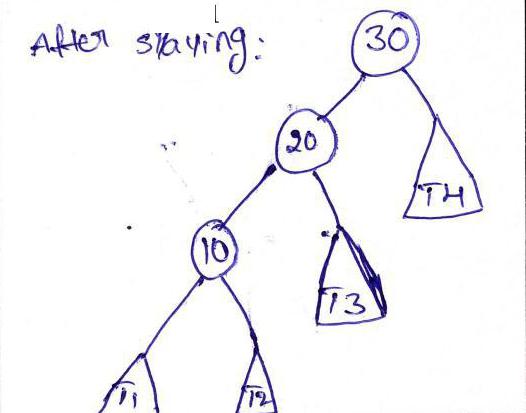 After splaying:
30
20
T4
10
T3
T1
T2